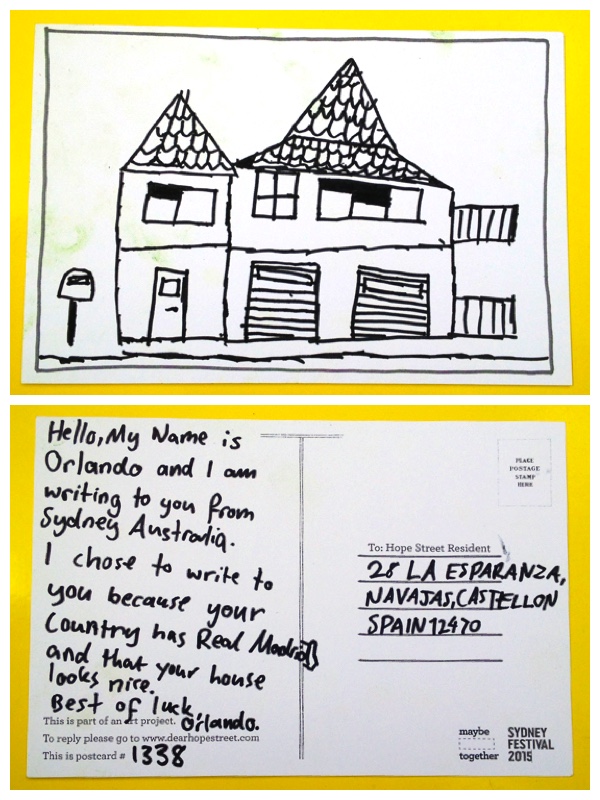 Hello, My Name is
Orlando and I am
writing to you from
Sydney Australia.
I chose to write to
you because your
Country has Real Madrid
and that your house
looks nice.
Best of luck,
Orlando.
This is part of an art project.
To reply please go to www.dearhopestreet.com
This is postcard # 1338
PLACE
POSTAGE
STAMP
HERE
To: Hope Street Resident
28 LA ESPARANZA,
NAVAJAS, CASTELLON
SPAIN 12470
maybe
together
SYDNEY
FESTIVAL
2015